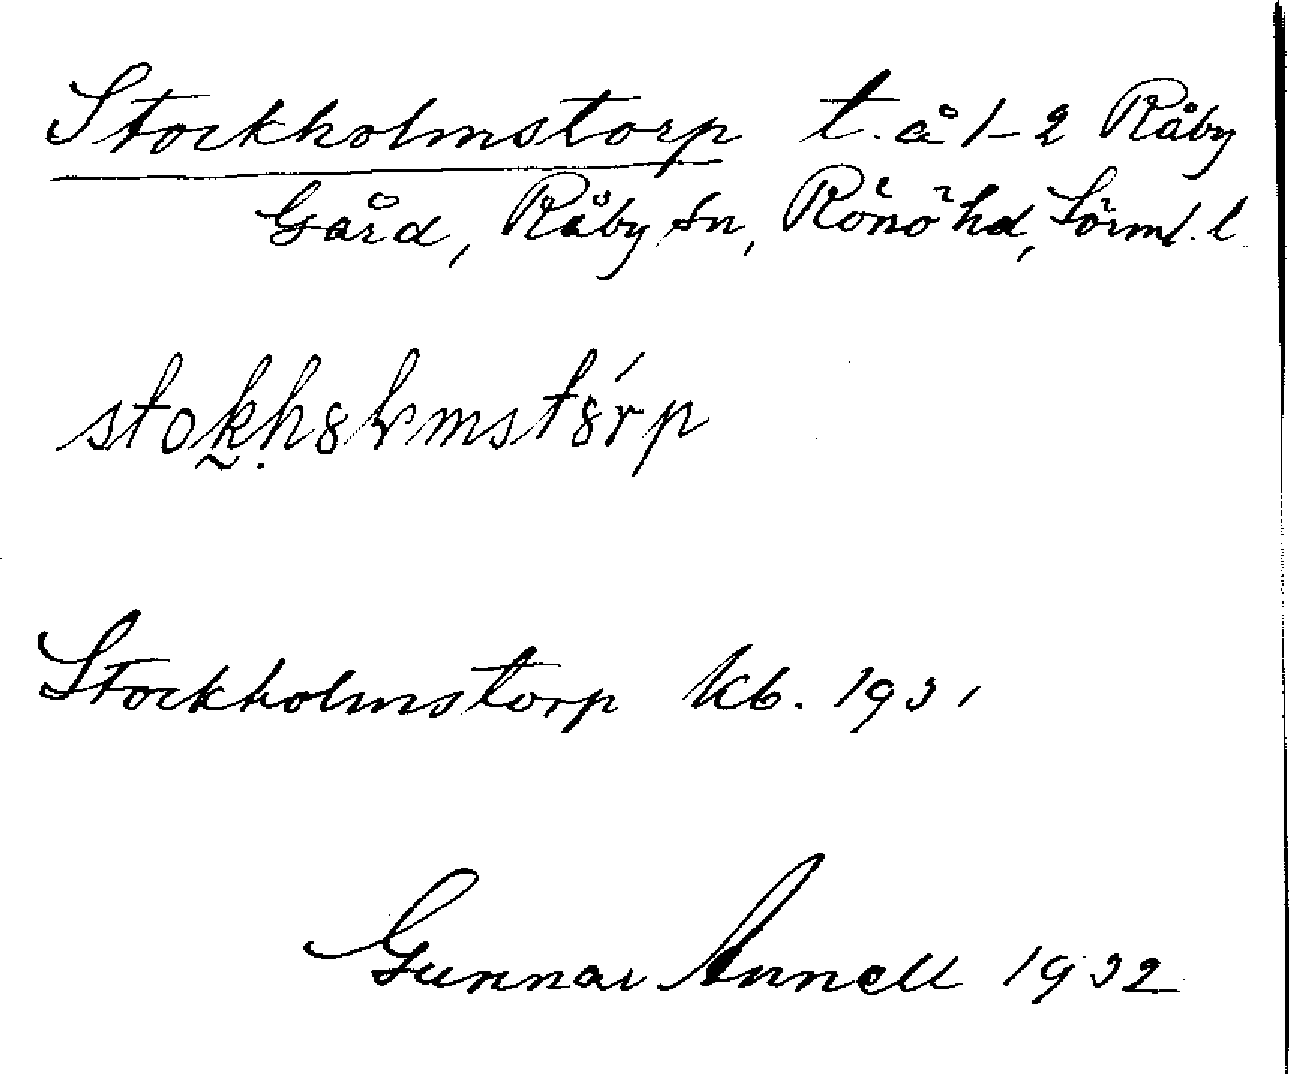 Stockholmstorp t. å 1-2 Råby
Gård, Råby sn, Rönö hd, Sörml. l.
Stockholmstorp kb. 1931
Gunnar Annell 1932